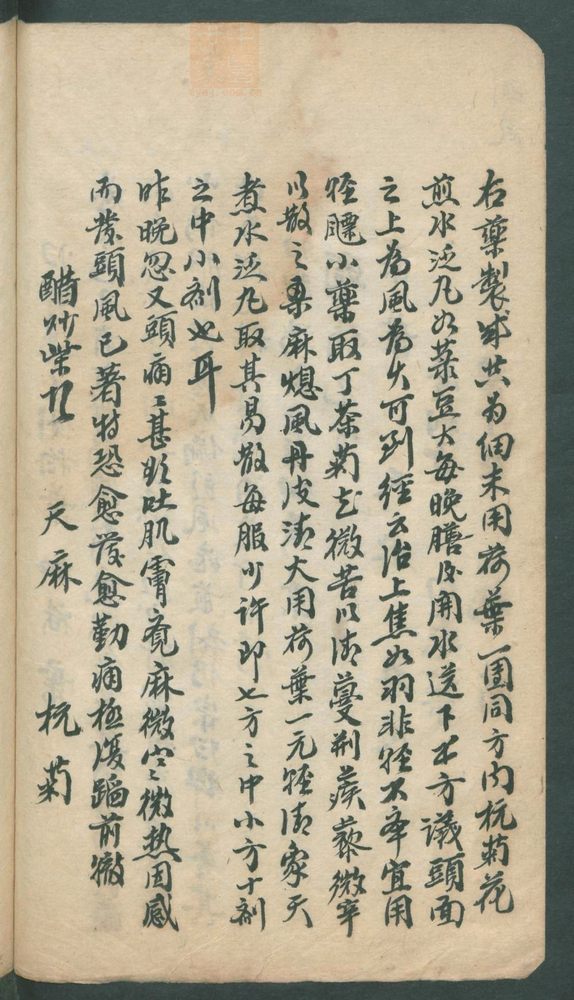 右藥製成共為細末用荷葉一團同方内杭菊花
煎水泛凡如菉豆大每晚膳後開水送下本方議頭面
之上為風為火可到經云治上焦如羽非輕不舉宜用
輕飄小藥取丁茶菊花微苦以清蔓荊蒺藜微辛
以散之桑麻熄風丹皮清火用荷葉一元輕清象天
煮水泛丸取其易散每服少許即七方之中小方十劑
之中小劑也耳
昨晚忽又頭痛甚欲吐肌膚竟麻微寒微熱因感
而發頭風已著特恐愈發愈勤痛極復蹈前轍
醋炒柴 天麻 杭菊